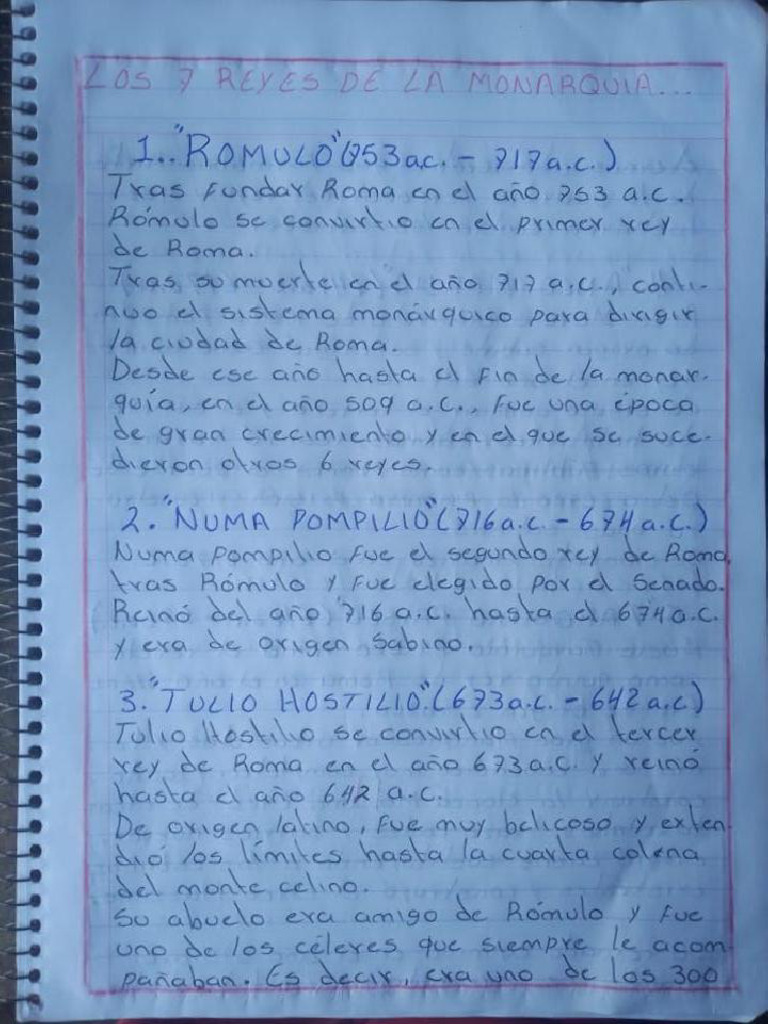 LOS 7 REYES DE LA MONARQUIA...
1.. "ROMULO" (753 a.c. - 717 a.c.)
Tras fundar Roma en el año 753 a.c.
Rómulo se convirtio en el primer rey
de Roma.
Tras su muerte en el año 717 a.c., conti-
nuo el sistema monárquico para dirigir
la ciudad de Roma.
Desde ese año hasta el fin de la monar-
quía, en el año 509 a.c., fue una época
de gran crecimiento y en el que se suce-
dieron otros 6 reyes.
2. "NUMA POMPILIO" (716 a.c. - 674 a.c.)
Numa Pompilio fue el segundo rey de Roma,
tras Rómulo y fue elegido por el Senado.
Reinó del año 716 a.c. hasta el 674 a.c.
y era de origen Sabino.
3. "TULIO HOSTILIO". (673 a.c. - 642 a.c)
Tulio Hostilio se convirtio en el tercer
rey de Roma en el año 673 a.c. y reinó
hasta el año 642 a.c.
De origen latino, fue muy belicoso y exten-
dió los límites hasta la cuarta colena
del monte celino.
Su abuelo era amigo de Rómulo y fue
uno de los céleres que siempre le acom
pañaban. Es decir, era uno de los 300